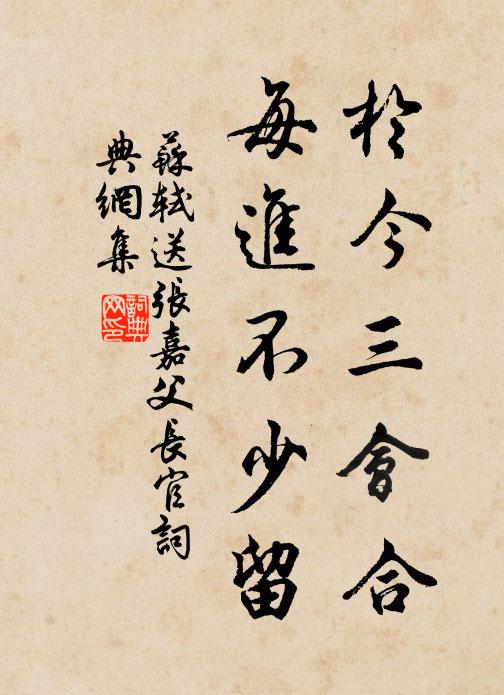 於今三會合
每進不少留
蘇軾送張嘉父長官詞
典網集
詞典
网印